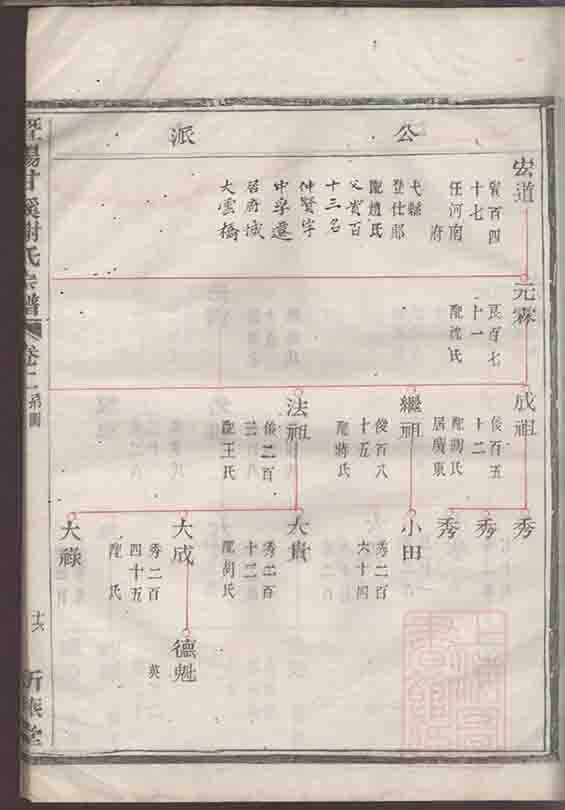 公派
宏道
賢百四
十七
任河南
府
弋縣
登仕郎
配趙氏
父賓百
十三名
仲賢字
中孚遷
居府城
大雲橋
元霖
艮百七
十一
配沈氏
成祖
俊百五
十二
配馮氏
居廣東
繼祖
俊百八
十五
配蔣氏
法祖
俊二百
三
配王氏
秀
秀
秀
小田
秀二百
六十四
大貴
秀二百
十二
配胡氏
大成
秀二百
四十五
配氏
大祿
德魁
英
暨陽甘溪謝氏宗譜
卷二
系圖